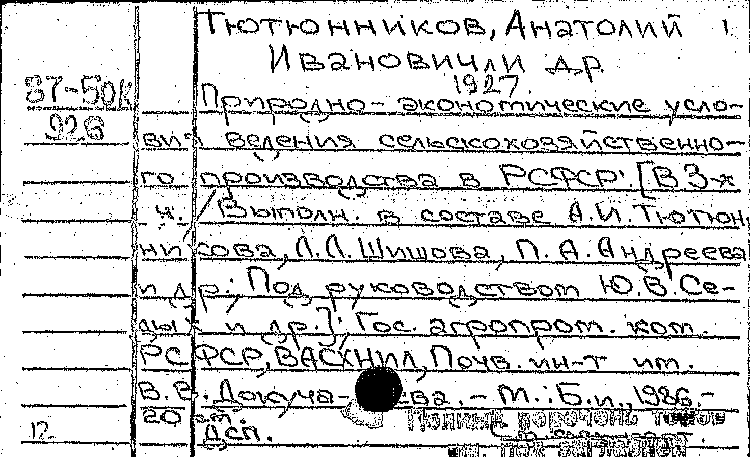 Тютюнников, Анатолий 1
Иванович и др
1927.
87-50к Природно-экономические усло-
926 вия ведения сельскохозяйственно-
го производства в РСФСР: [В 3-х
ч. / Выполн. в составе А.И. Тютюн
никова, Л.Л. Шишова, П.А. Андреева
и др.; Под руководством Ю.В. Се-
дых и др.]; Гос. агропром. ком.
РСФСР, ВАСХНИЛ, Почв. ин-т им.
В.В. Докуча- ева. - М.: Б.и., 1986.-
20 см. Полный перечень томов
12. ДСП. см. под заглавием